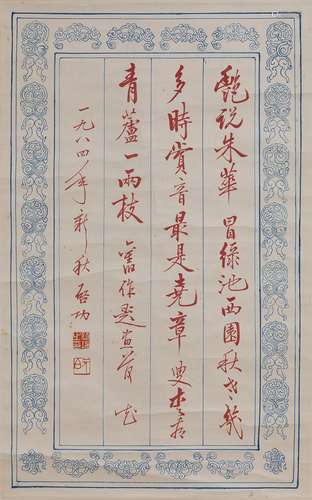 艷说朱華冒緑池西園秋老幾
多時賞音最是堯章叟
青蘆一兩枝 舊作題畫荷花
一九八四年新秋啟功